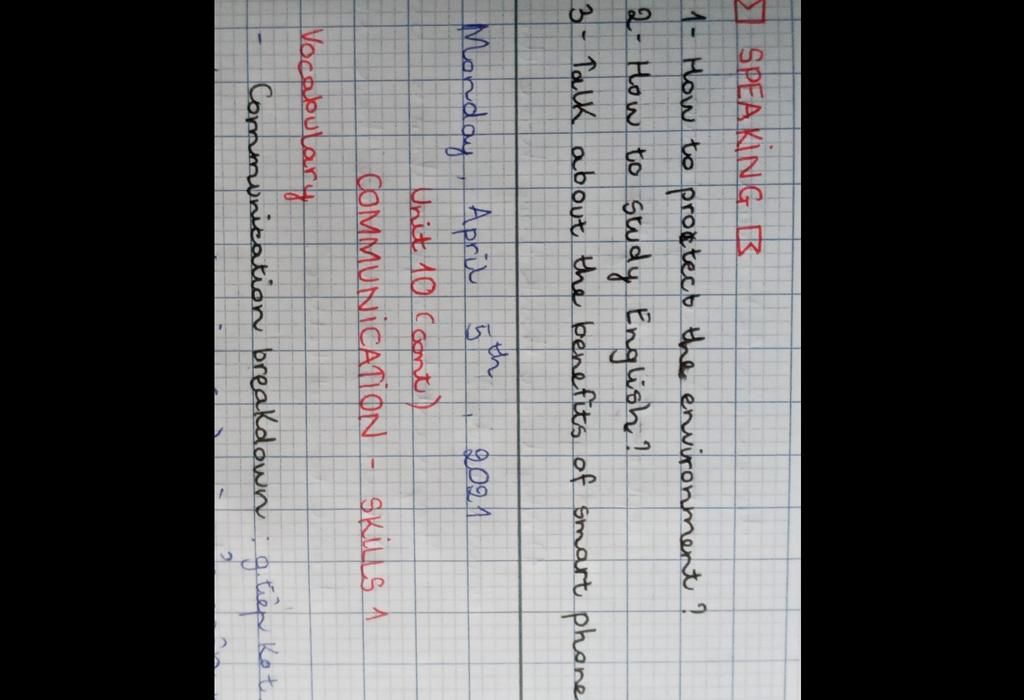 SPEAKING
1- How to protect the environment?
2- How to study English?
3- Talk about the benefits of smart phone
Monday, April 5th, 2021
Unit 10 (cont)
COMMUNICATION - SKILLS 1
Vocabulary
- Communication breakdown : g.tiếp